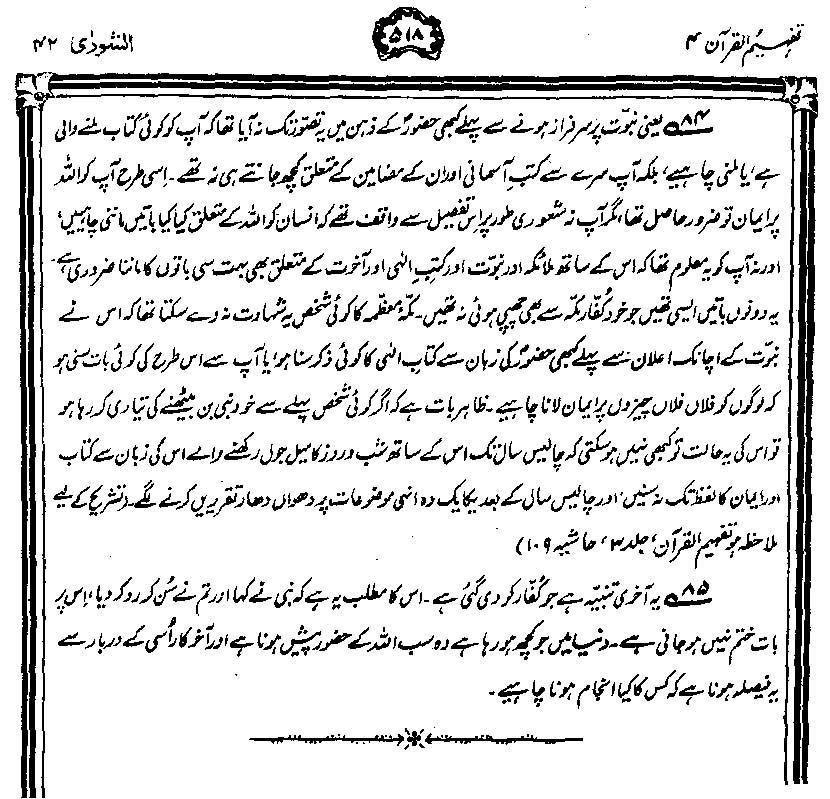 تفہیم القرآن ۴
۵۱۸
الشوریٰ ۴۲
۸۴ یعنی نبوّت پر سرفراز ہونے سے پہلے کبھی حضورؐ کے ذہن میں یہ تصوّر تک نہ آیا تھا کہ آپ کو کوئی کتاب ملنے والی
ہے، یا ملنی چاہیے، بلکہ آپ سرے سے کتبِ آسمانی اور ان کے مضامین کے متعلق کچھ جانتے ہی نہ تھے۔ اِسی طرح آپ کو اللہ
پر ایمان تو ضرور حاصل تھا، مگر آپ نہ شعوری طور پر اِس تفصیل سے واقف تھے کہ انسان کو اللہ کے متعلق کیا کیا باتیں ماننی چاہییں،
اور نہ آپ کو یہ معلوم تھا کہ اس کے ساتھ ملائکہ اور نبوّت اور کتبِ الٰہی اور آخرت کے متعلق بھی بہت سی باتوں کا ماننا ضروری ہے۔
یہ دونوں باتیں ایسی تھیں جو خود کفارِ مکّہ سے بھی چھپی ہوئی نہ تھیں۔ مکۂ معظمہ کا کوئی شخص یہ شہادت نہ دے سکتا تھا کہ اس نے
نبوّت کے اچانک اعلان سے پہلے کبھی حضورؐ کی زبان سے کتابِ الٰہی کا کوئی ذکر سنا ہو، یا آپ سے اس طرح کی کوئی بات سنی ہو
کہ لوگوں کو فلاں فلاں چیزوں پر ایمان لانا چاہیے۔ ظاہر بات ہے کہ اگر کوئی شخص پہلے سے خود نبی بن بیٹھنے کی تیاری کر رہا ہو
تو اس کی یہ حالت تو کبھی نہیں ہو سکتی کہ چالیس سال تک اس کے ساتھ شب و روز کا میل جول رکھنے والے اس کی زبان سے کتاب
اور ایمان کا لفظ تک نہ سنیں، اور چالیس سال کے بعد یکایک وہ انہی موضوعات پر دھواں دھار تقریریں کرنے لگے۔ (تشریح کے لیے
ملاحظہ ہو تفہیم القرآن، جلد ۳، حاشیہ ۱۰۹)
۸۵ یہ آخری تنبیہ ہے جو کفّار کو دی گئی ہے۔ اس کا مطلب یہ ہے کہ نبی نے کہا اور تم نے سُن کر رد کر دیا، اِس پر
بات ختم نہیں ہو جانی ہے۔ دنیا میں جو کچھ ہو رہا ہے وہ سب اللہ کے حضور پیش ہونا ہے اور آخر کار اُسی کے دربار سے
یہ فیصلہ ہونا ہے کہ کس کا کیا انجام ہونا چاہیے۔